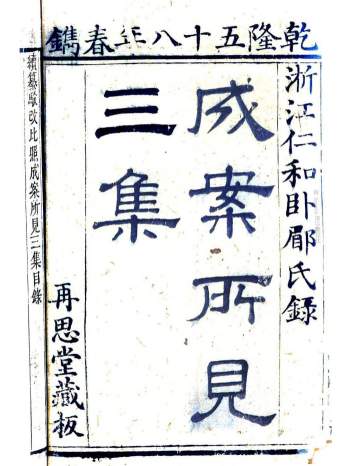 乾隆五十八年春鐫
浙江仁和卧郿氏錄
成案所見
三集
再思堂藏板
續纂駁改比照成案所見三集目錄